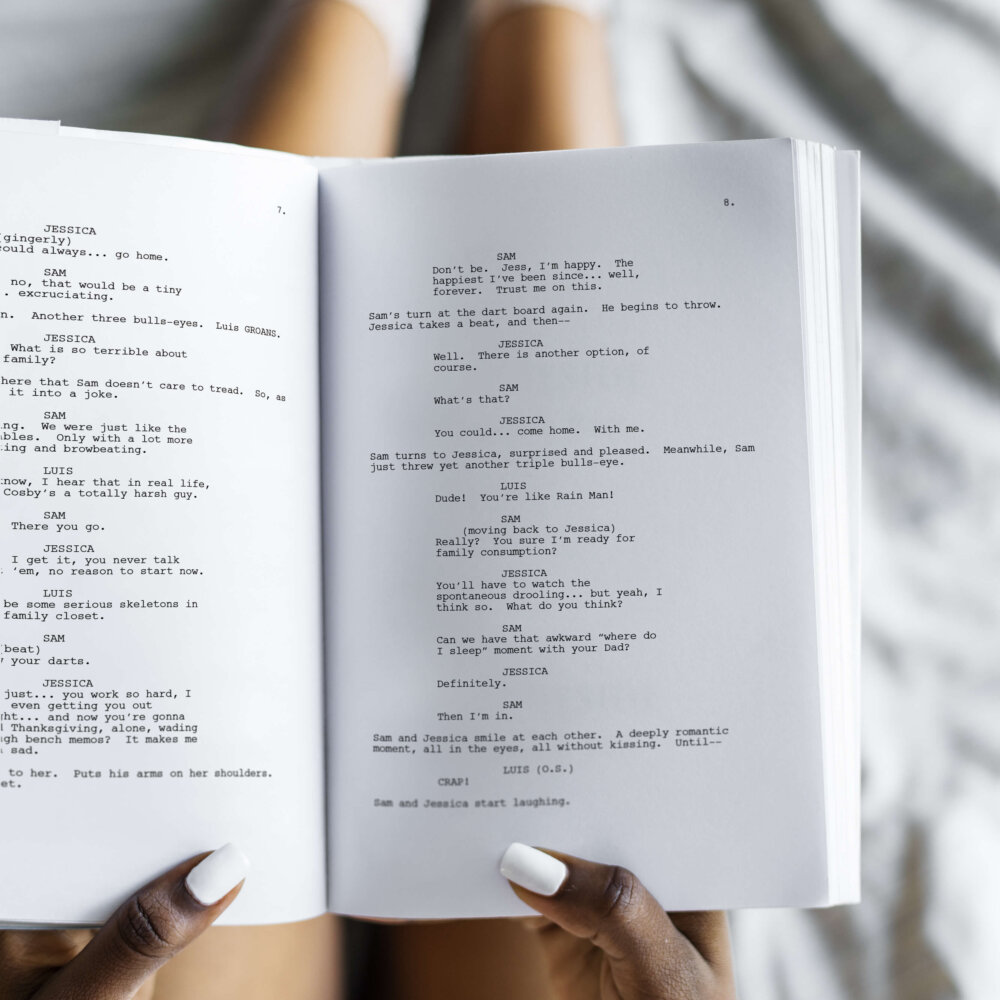 7.
JESSICA
(gingerly)
could always... go home.
SAM
no, that would be a tiny
. excruciating.
n. Another three bulls-eyes. Luis GROANS.
JESSICA
What is so terrible about
family?
here that Sam doesn't care to tread. So, as
it into a joke.
SAM
ng. We were just like the
bles. Only with a lot more
ing and browbeating.
LUIS
know, I hear that in real life,
Cosby's a totally harsh guy.
SAM
There you go.
JESSICA
I get it, you never talk
'em, no reason to start now.
LUIS
be some serious skeletons in
family closet.
SAM
(beat)
your darts.
JESSICA
just... you work so hard, I
even getting you out
ht... and now you're gonna
Thanksgiving, alone, wading
gh bench memos? It makes me
sad.
to her. Puts his arms on her shoulders.
et.
8.
SAM
Don't be. Jess, I'm happy. The
happiest I've been since... well,
forever. Trust me on this.
Sam's turn at the dart board again. He begins to throw.
Jessica takes a beat, and then--
JESSICA
Well. There is another option, of
course.
SAM
What's that?
JESSICA
You could... come home. With me.
Sam turns to Jessica, surprised and pleased. Meanwhile, Sam
just threw yet another triple bulls-eye.
LUIS
Dude! You're like Rain Man!
SAM
(moving back to Jessica)
Really? You sure I'm ready for
family consumption?
JESSICA
You'll have to watch the
spontaneous drooling... but yeah, I
think so. What do you think?
SAM
Can we have that awkward "where do
I sleep" moment with your Dad?
JESSICA
Definitely.
SAM
Then I'm in.
Sam and Jessica smile at each other. A deeply romantic
moment, all in the eyes, all without kissing. Until--
LUIS (O.S.)
CRAP!
Sam and Jessica start laughing.